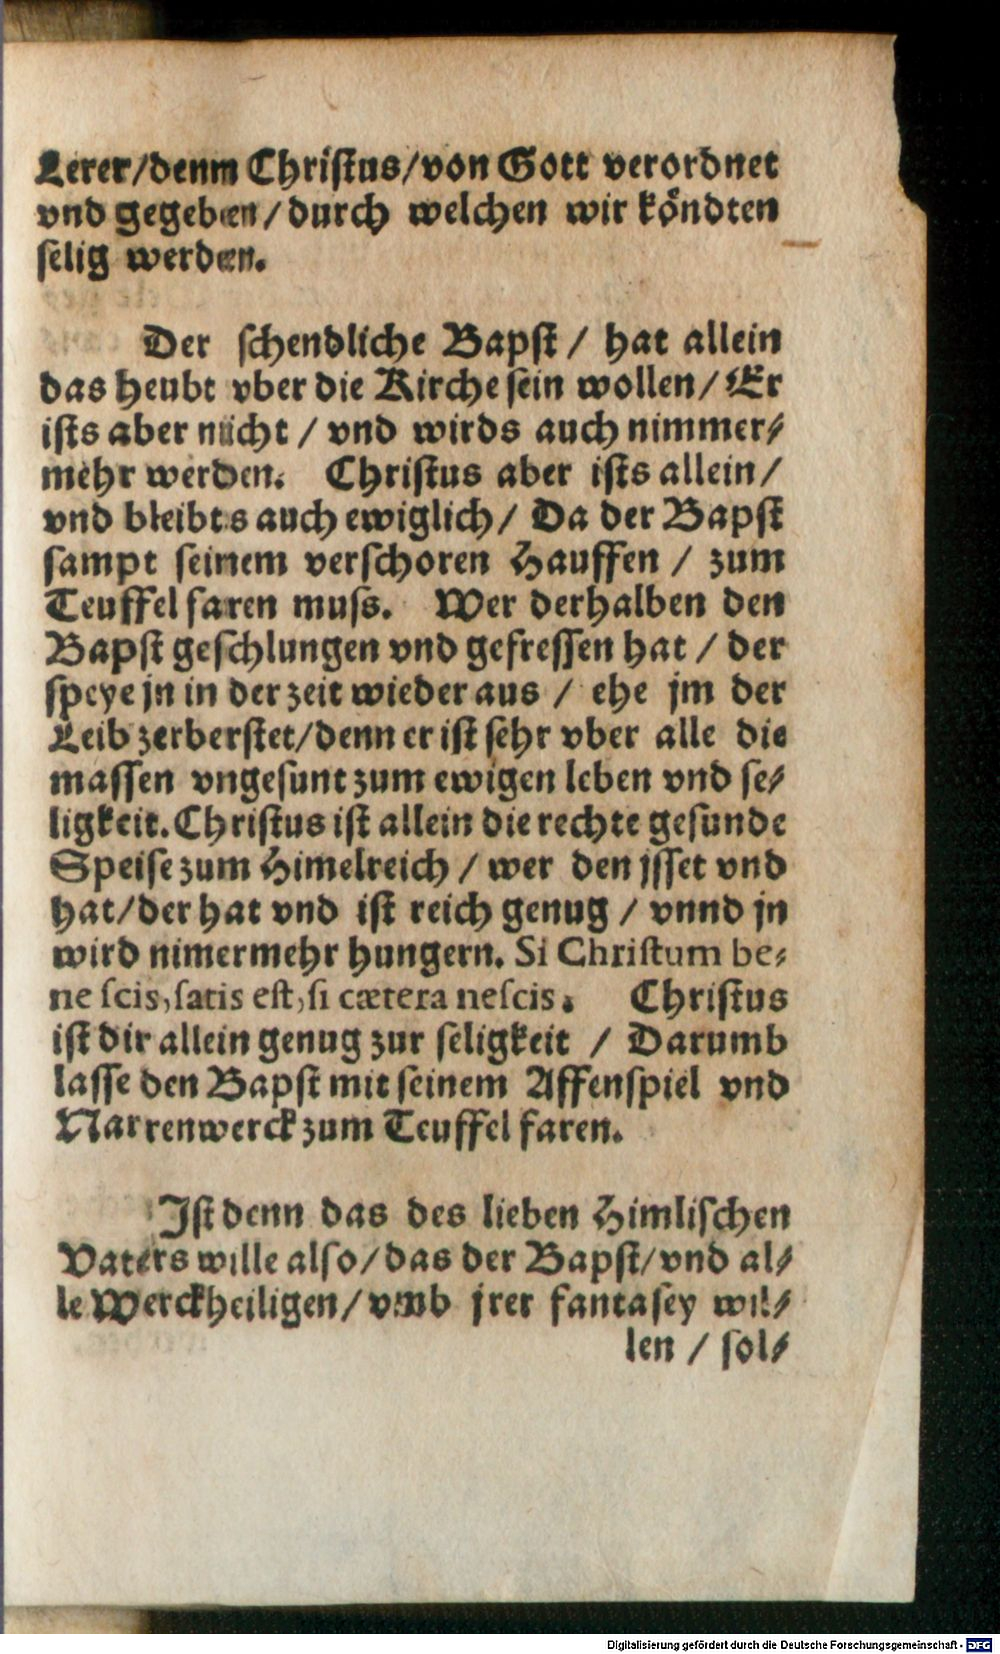 Lerer/denm Christus/von Gott verordnet
vnd gegeben/durch welchen wir köndten
selig werden.
Der schendliche Bapst / hat allein
das heubt vber die Kirche sein wollen/Er
ists aber nicht / vnd wirds auch nimmer⸗
mehr werden. Christus aber ists allein/
vnd bleibts auch ewiglich/ Da der Bapst
sampt seinem verschoren Hauffen / zum
Teuffel faren muss. Wer derhalben den
Bapst geschlungen vnd gefressen hat / der
speye jn in der zeit wieder aus / ehe jm der
Leib zerberstet/denn er ist sehr vber alle die
massen vngesunt zum ewigen leben vnd se⸗
ligkeit. Christus ist allein die rechte gesunde
Speise zum Himelreich / wer den jsset vnd
hat/der hat vnd ist reich genug / vnnd jn
wird nimermehr hungern. Si Christum be⸗
ne scis, satis est, si cætera nescis. Christus
ist dir allein genug zur seligkeit / Darumb
lasse den Bapst mit seinem Affenspiel vnd
Narrenwerck zum Teuffel faren.
Ist denn das des lieben Himlischen
Vaters wille also/das der Bapst/vnd al⸗
le Werckheiligen/vmb jrer fantasey wil⸗
len / sol⸗
Digitalisierung gefördert durch die Deutsche Forschungsgemeinschaft - DFG